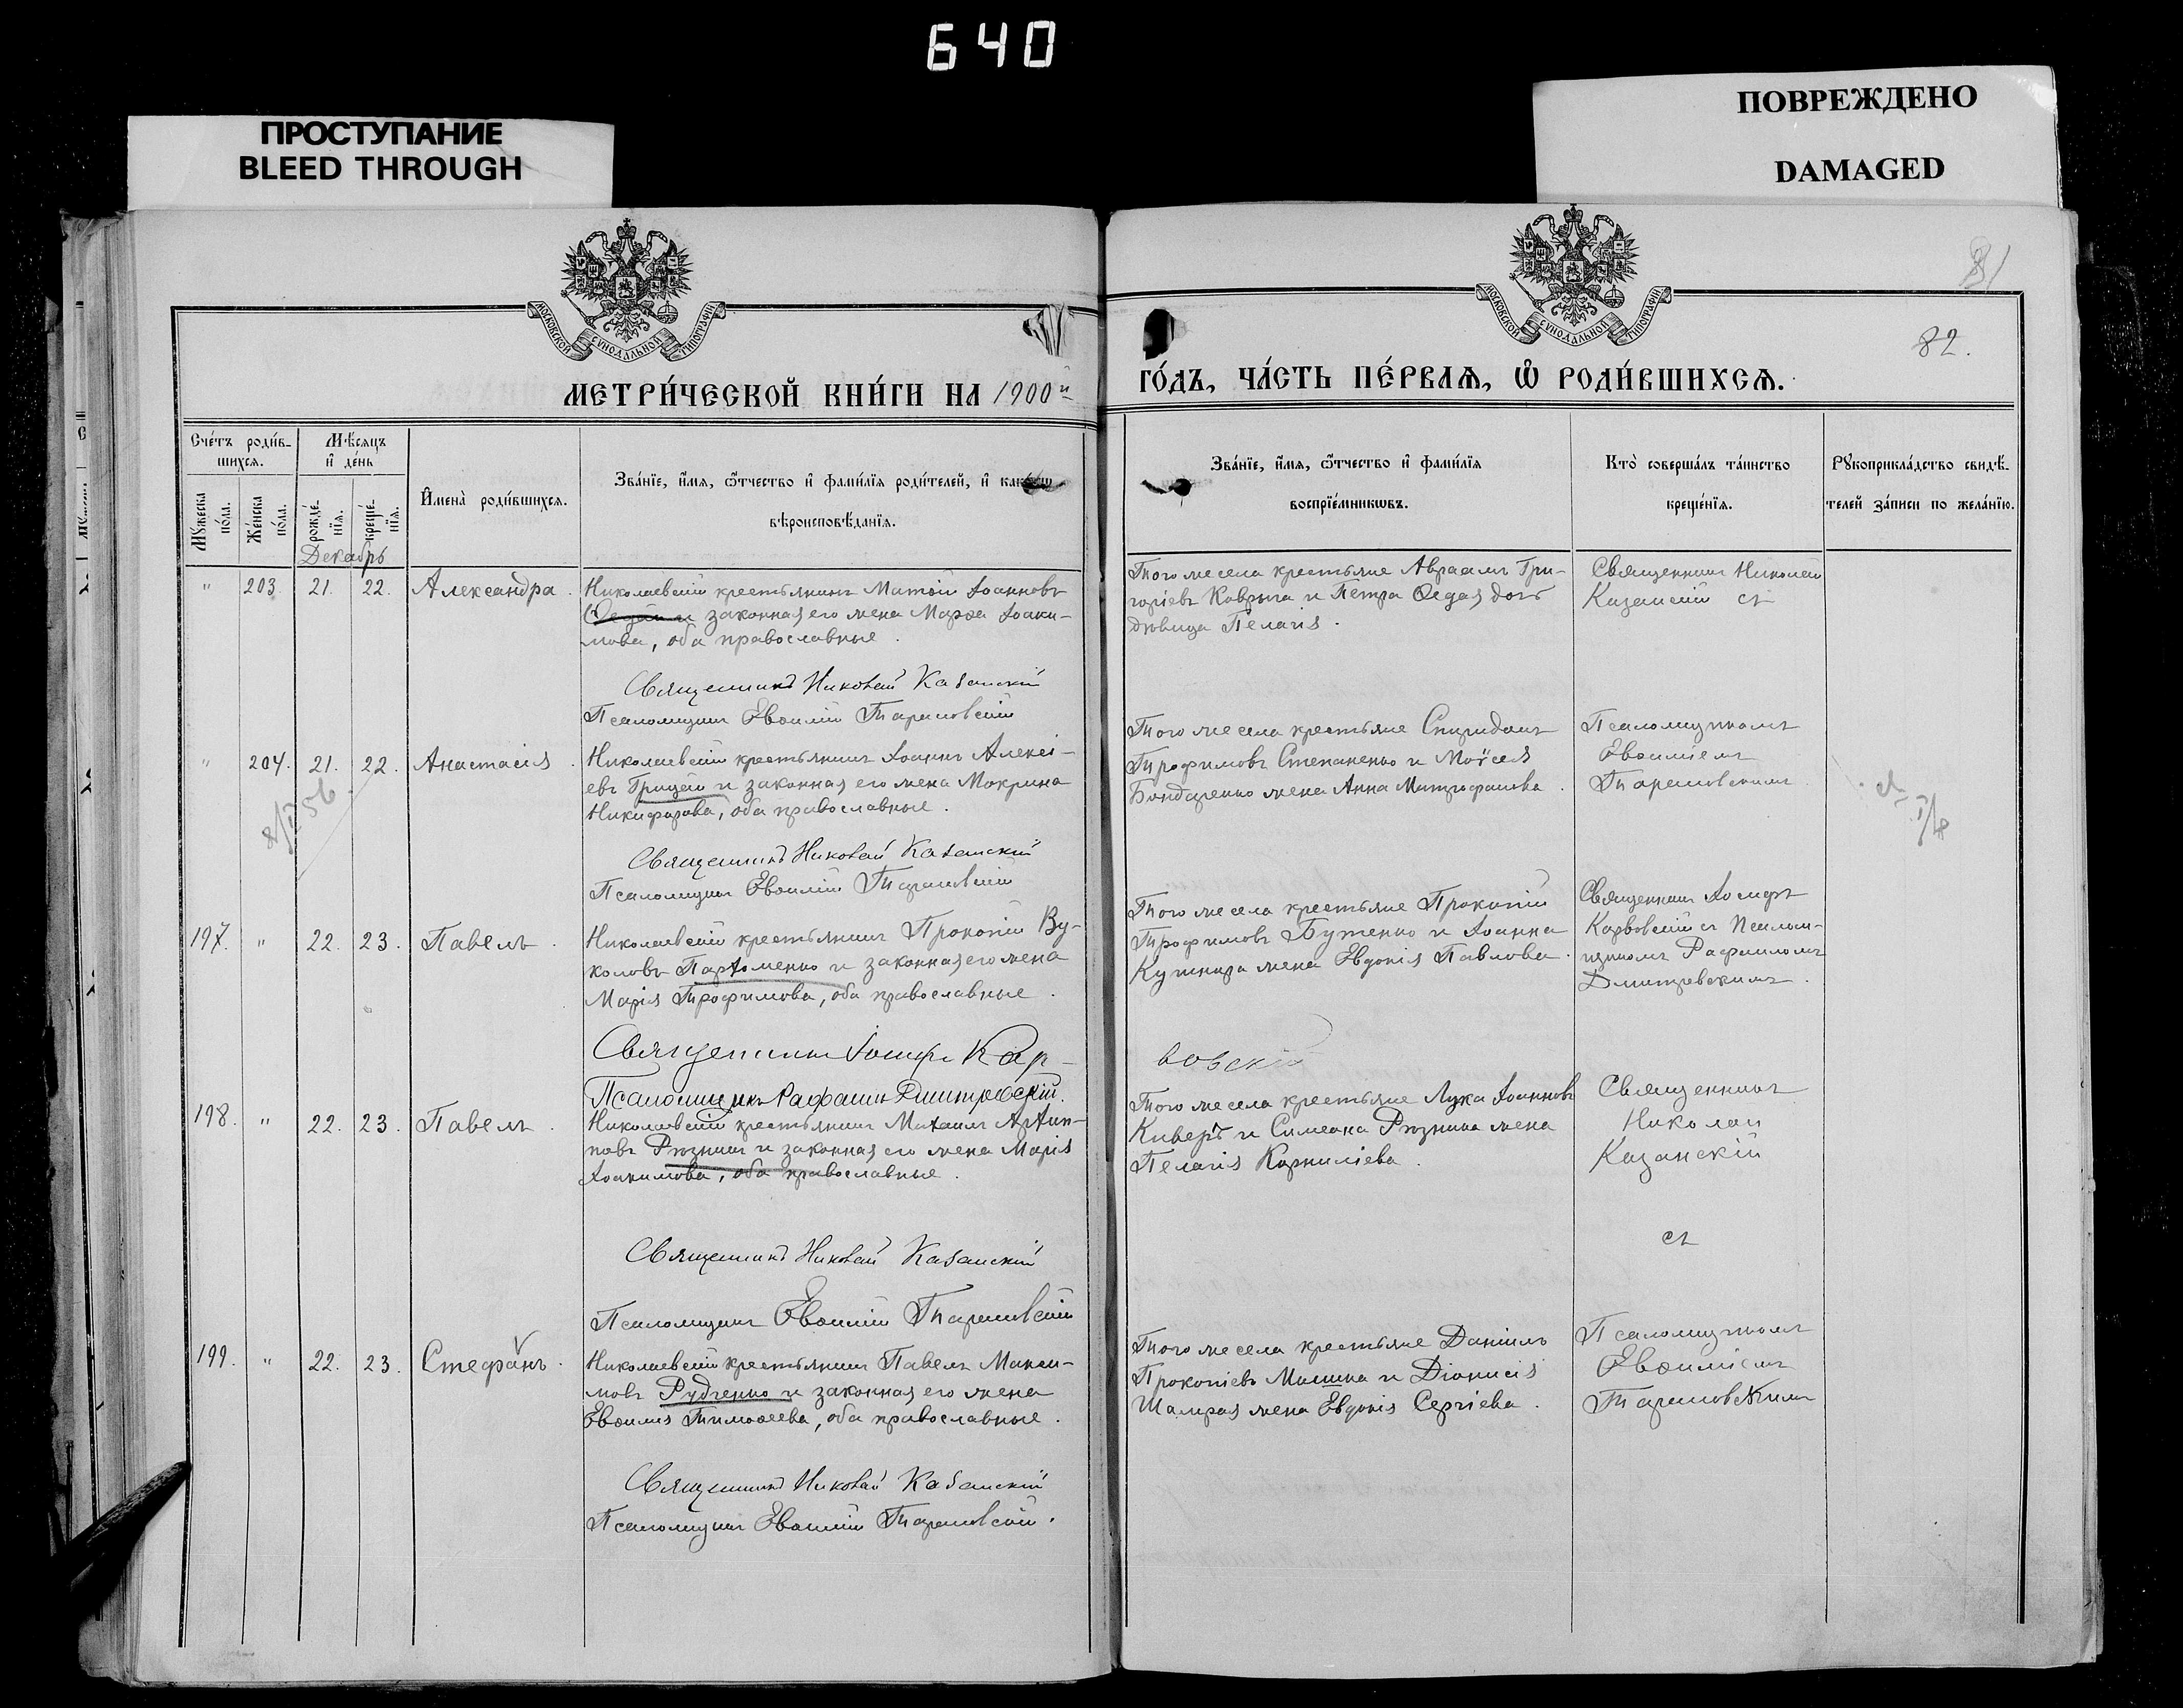 640
ПРОСТУПАНИЕ
BLEED THROUGH
ПОВРЕЖДЕНО
DAMAGED
МОСКОВСКОЙ СУНОДАЛЬНОЙ ТИПОГРАФІИ
МОСКОВСКОЙ СУНОДАЛЬНОЙ ТИПОГРАФІИ
81
82.
МЕТРИ́ЧЕСКОЙ КНИ́ГИ НА 1900й
ГО́ДЪ, ЧА́СТЬ ПЕ́РВАѦ, Ѡ РОДИ́ВШИХСѦ.
Сче́тъ роди́в-
шихсѧ.
Мꙋжеска по́ла.
Же́нска по́ла.
Мѣ́сѧцъ
и де́нь
рожде́-
нїѧ.
креще́-
нїѧ.
Декабрь
Имена̀ роди́вшихсѧ.
Зва́нїе, и́мѧ, ѻ́тчество и фами́лїѧ роди́телей, и како́гѡ
вѣроисповѣ́данїѧ.
Зва́нїе, и́мѧ, ѻ́тчество и фами́лїѧ
воспрїе́мникѡвъ.
Кто̀ соверша́лъ та́инство
креще́нїѧ.
Рꙋкоприкла́дство свидѣ́-
телей за́писи по жела́нїю.
" 203. 21. 22. Александра.
Николаевскій крестьянинъ Матѳій Іоанновъ
законная его жена Марѳа Іоаки-
мова, оба православные.
Священникъ Николай Казанскій
Псаломщикъ Евѳимій Тарановскій
Того же села крестьяне Авраамъ Гри-
горіевъ Коврыга и Петра дочь
дѣвица Пелагія.
Священникъ Николай
Казанскій съ
" 204. 21. 22. Анастасія.
Николаевскій крестьянинъ Іоаннъ Алексі-
евъ Грицай и законная его жена Мокрина
Никифорова, оба православные.
Священникъ Николай Казанскій
Псаломщикъ Евѳимій Тарановскій
Того же села крестьяне Спиридонъ
Трофимовъ Степаненко и Моѵсея
Бондаренко жена Анна Митрофанова.
Псаломщикомъ
Евѳиміемъ
Тарановскимъ
197. " 22. 23. Павелъ.
Николаевскій крестьянинъ Прокопій Ву-
коловъ Пархоменко и законная его жена
Марія Трофимова, оба православные.
Священникъ Іосифъ Кар-
вовскій
Псаломщикъ Рафаилъ Дмитревскій.
Того же села крестьяне Прокопій
Трофимовъ Бутенко и Іоанна
Кушнира жена Евдокія Павлова.
Священникъ Іосифъ
Карвовскій съ Псалом-
щикомъ Рафаиломъ
Дмитревскимъ.
198. " 22. 23. Павелъ.
Николаевскій крестьянинъ Михаилъ Архип-
повъ Рѣзникъ и законная его жена Марія
Іоакимова, оба православные.
Священникъ Николай Казанскій
Псаломщикъ Евѳимій Тарановскій
Того же села крестьяне Лука Іоанновъ
Киверъ и Симеона Рѣзника жена
Пелагія Корниліева.
Священникъ
Николай
Казанскій
съ
199. " 22. 23. Стефанъ.
Николаевскій крестьянинъ Павелъ Макси-
мовъ Рудченко и законная его жена
Евѳимія Тимоѳеева, оба православные.
Священникъ Николай Казанскій
Псаломщикъ Евѳимій Тарановскій.
Того же села крестьяне Даніилъ
Прокопіевъ и Діонисія
Шамрая жена Евдокія Сергіева.
Псаломщикомъ
Евѳиміемъ
Тарановскимъ